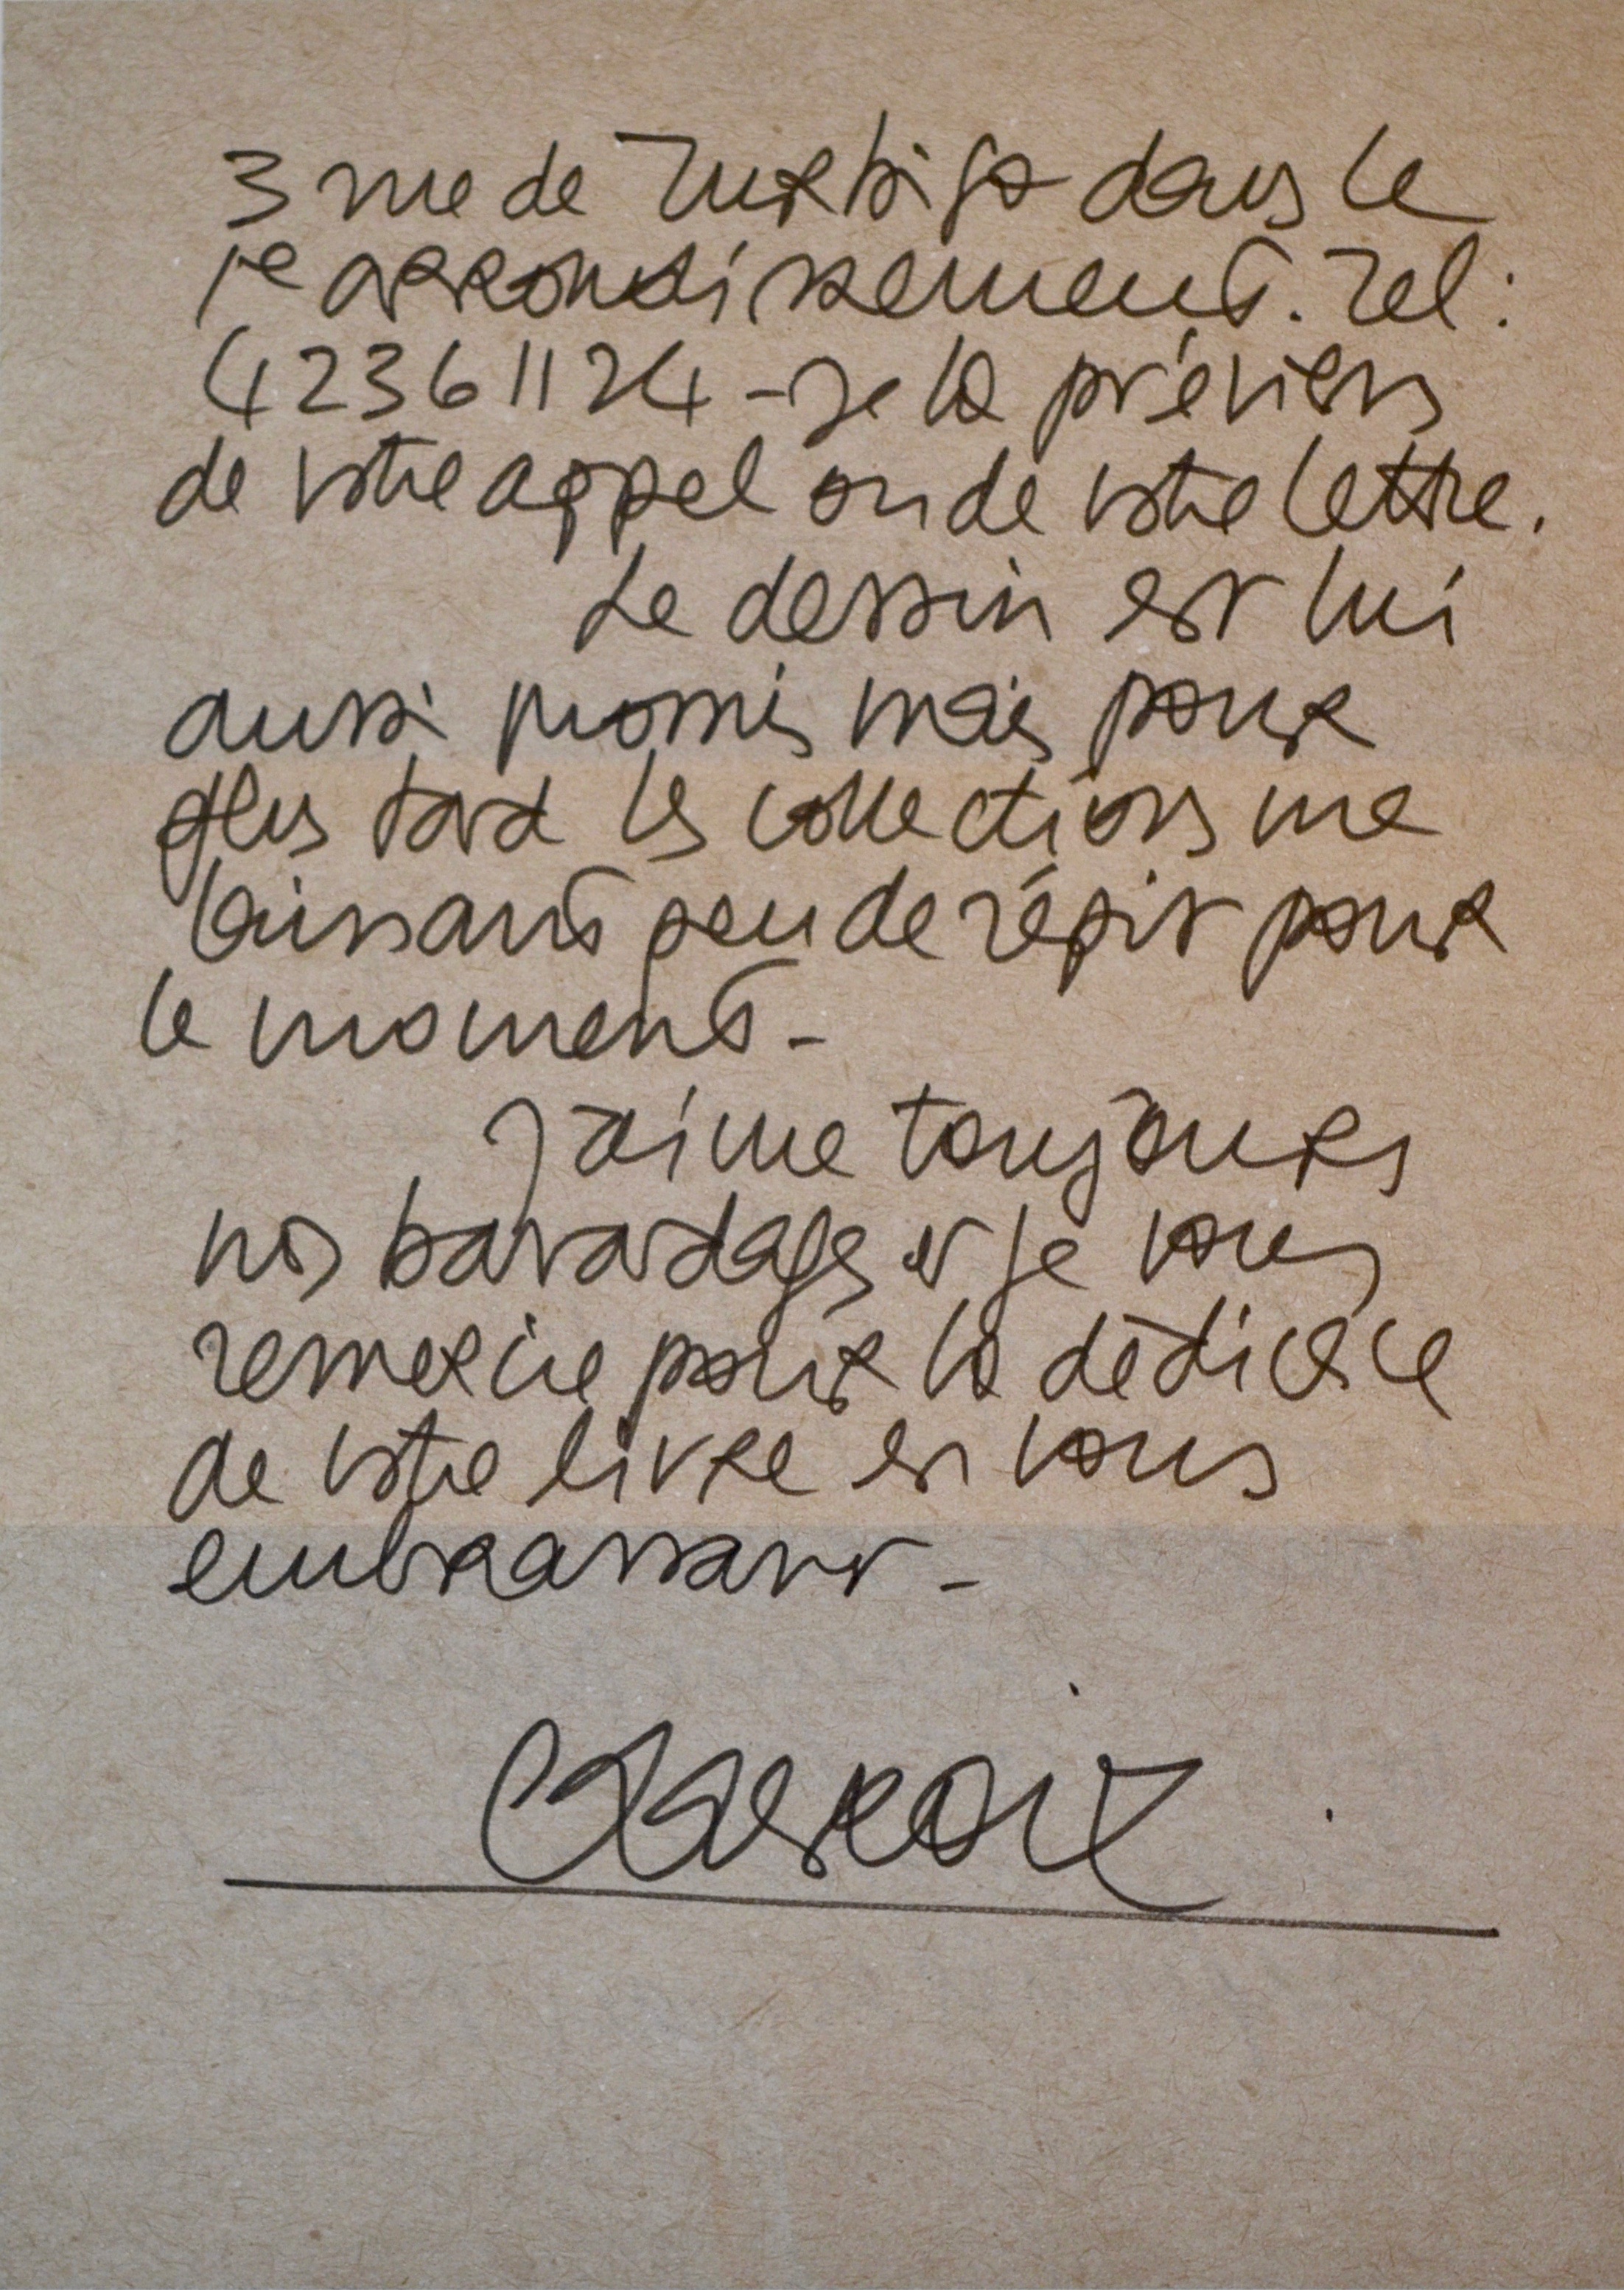 3 rue de Turbigo dans le
1e arrondissement. Tel :
42361124 - Je la préviens
de votre appel ou de votre lettre.
Le dessin est lui
aussi promis mais pour
plus tard les collections me
laissant peu de répit pour
le moment -
J'aime toujours
nos bavardages et je vous
remercie pour la dédicace
de votre livre en vous
embrassant -